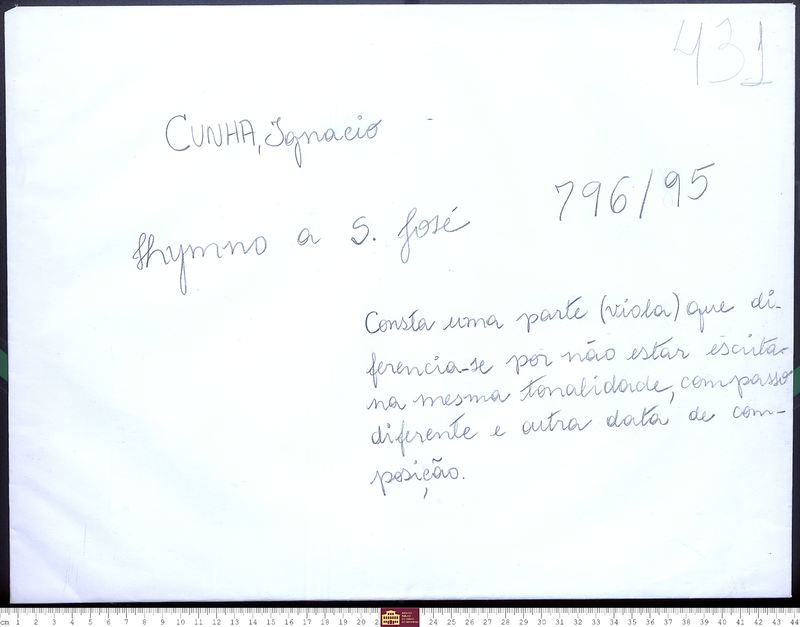 431
CUNHA, Ignacio -
796/95
Hymno a S. José
Consta uma parte (viola) que di-
ferencia-se por não estar escrita
na mesma tonalidade, compasso
diferente e outra data de com-
posição.
cm 1 2 3 4 5 6 7 8 9 10 11 12 13 14 15 16 17 18 19 20 2 24 25 26 27 28 29 30 31 32 33 34 35 36 37 38 39 40 41 42 43 44